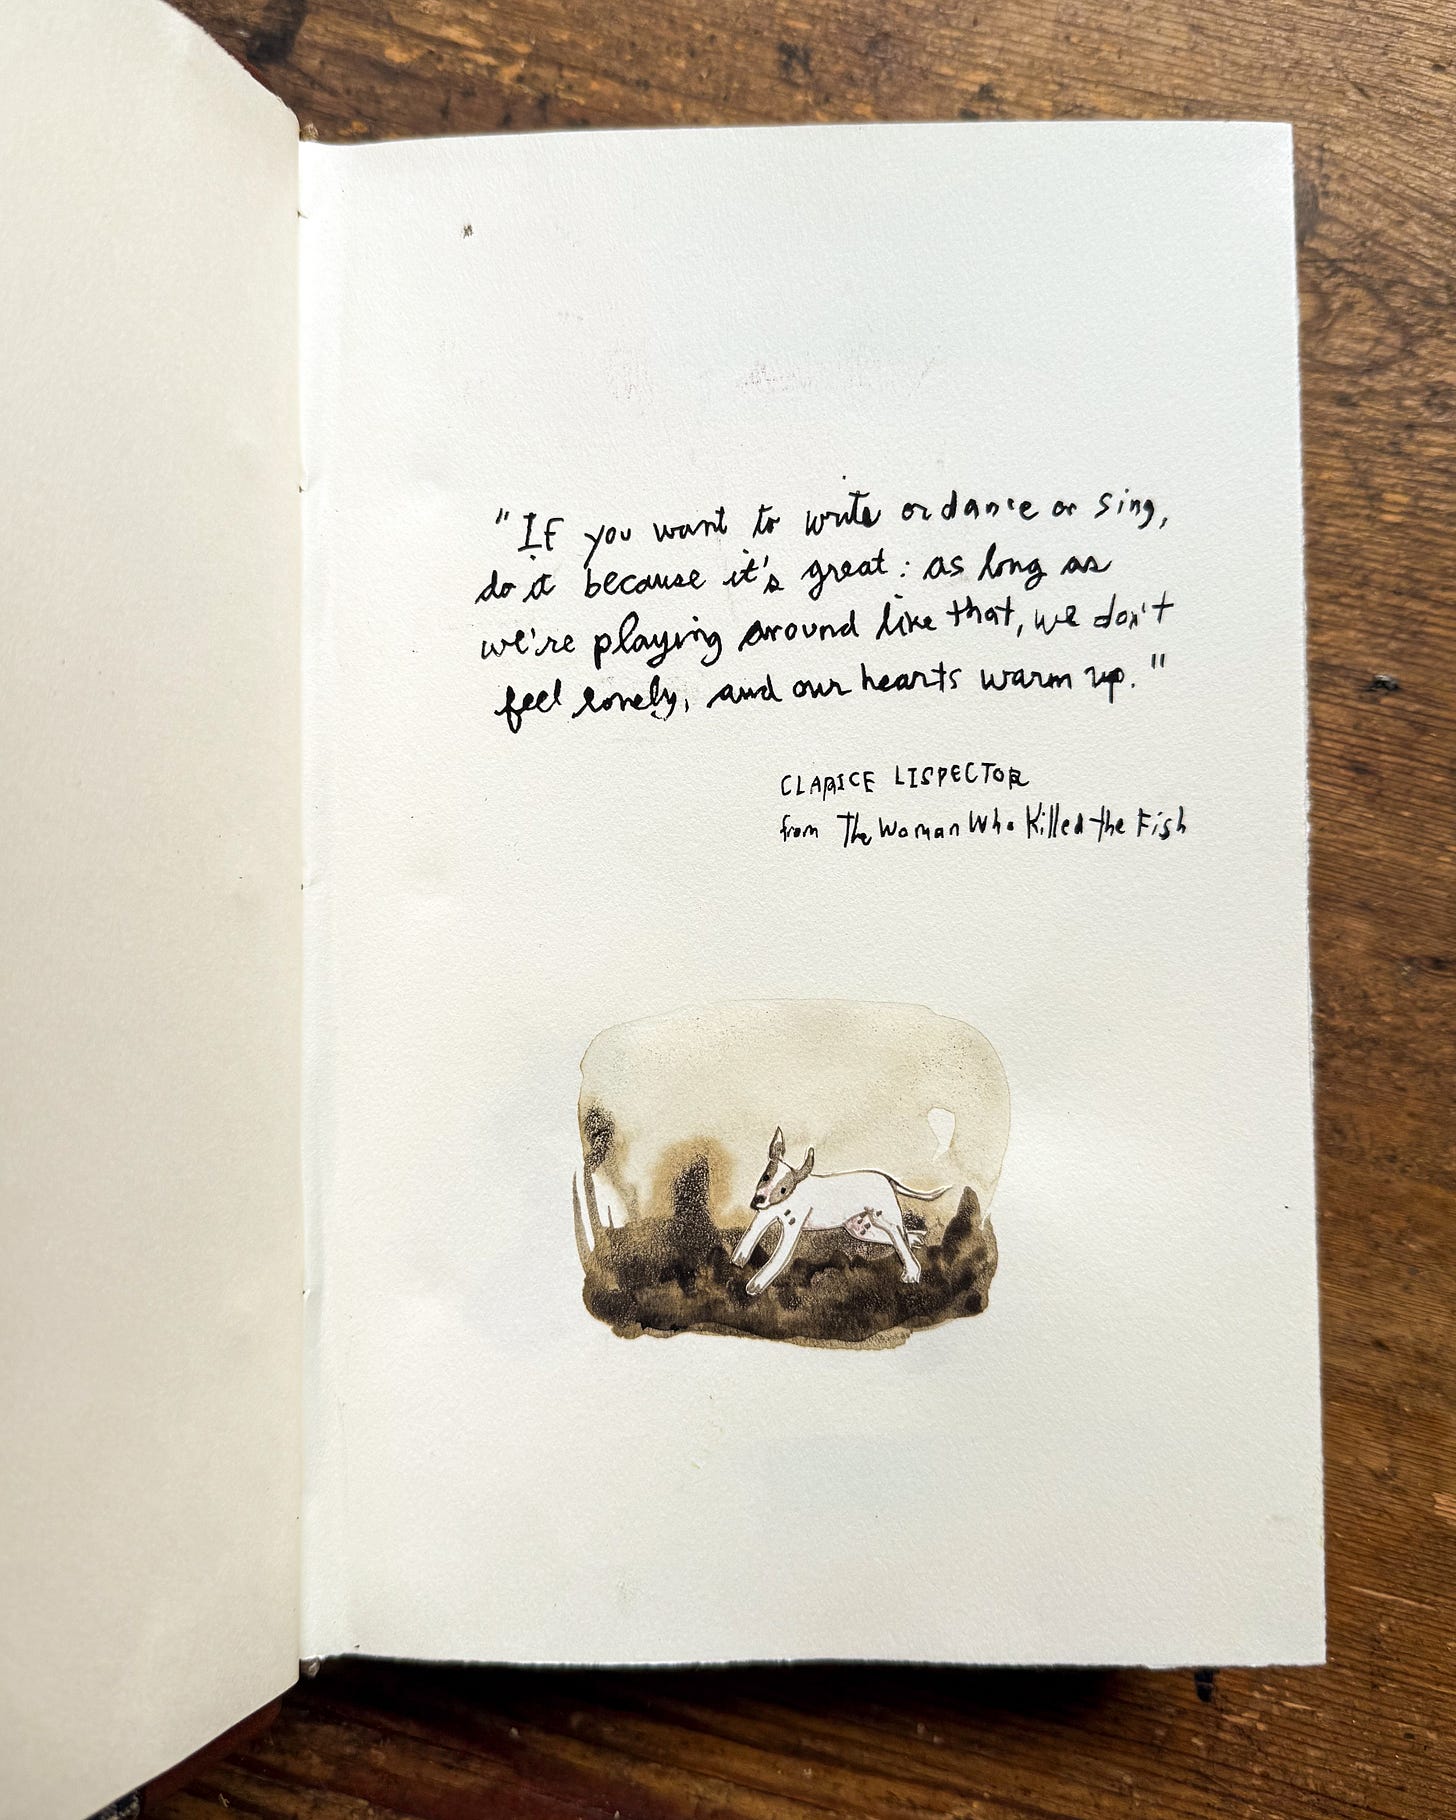 "IF you want to write or dance or sing,
do it because it's great: as long as
we're playing around like that, we don't
feel lonely, and our hearts warm up."
CLARICE LISPECTOR
from The Woman Who Killed the Fish